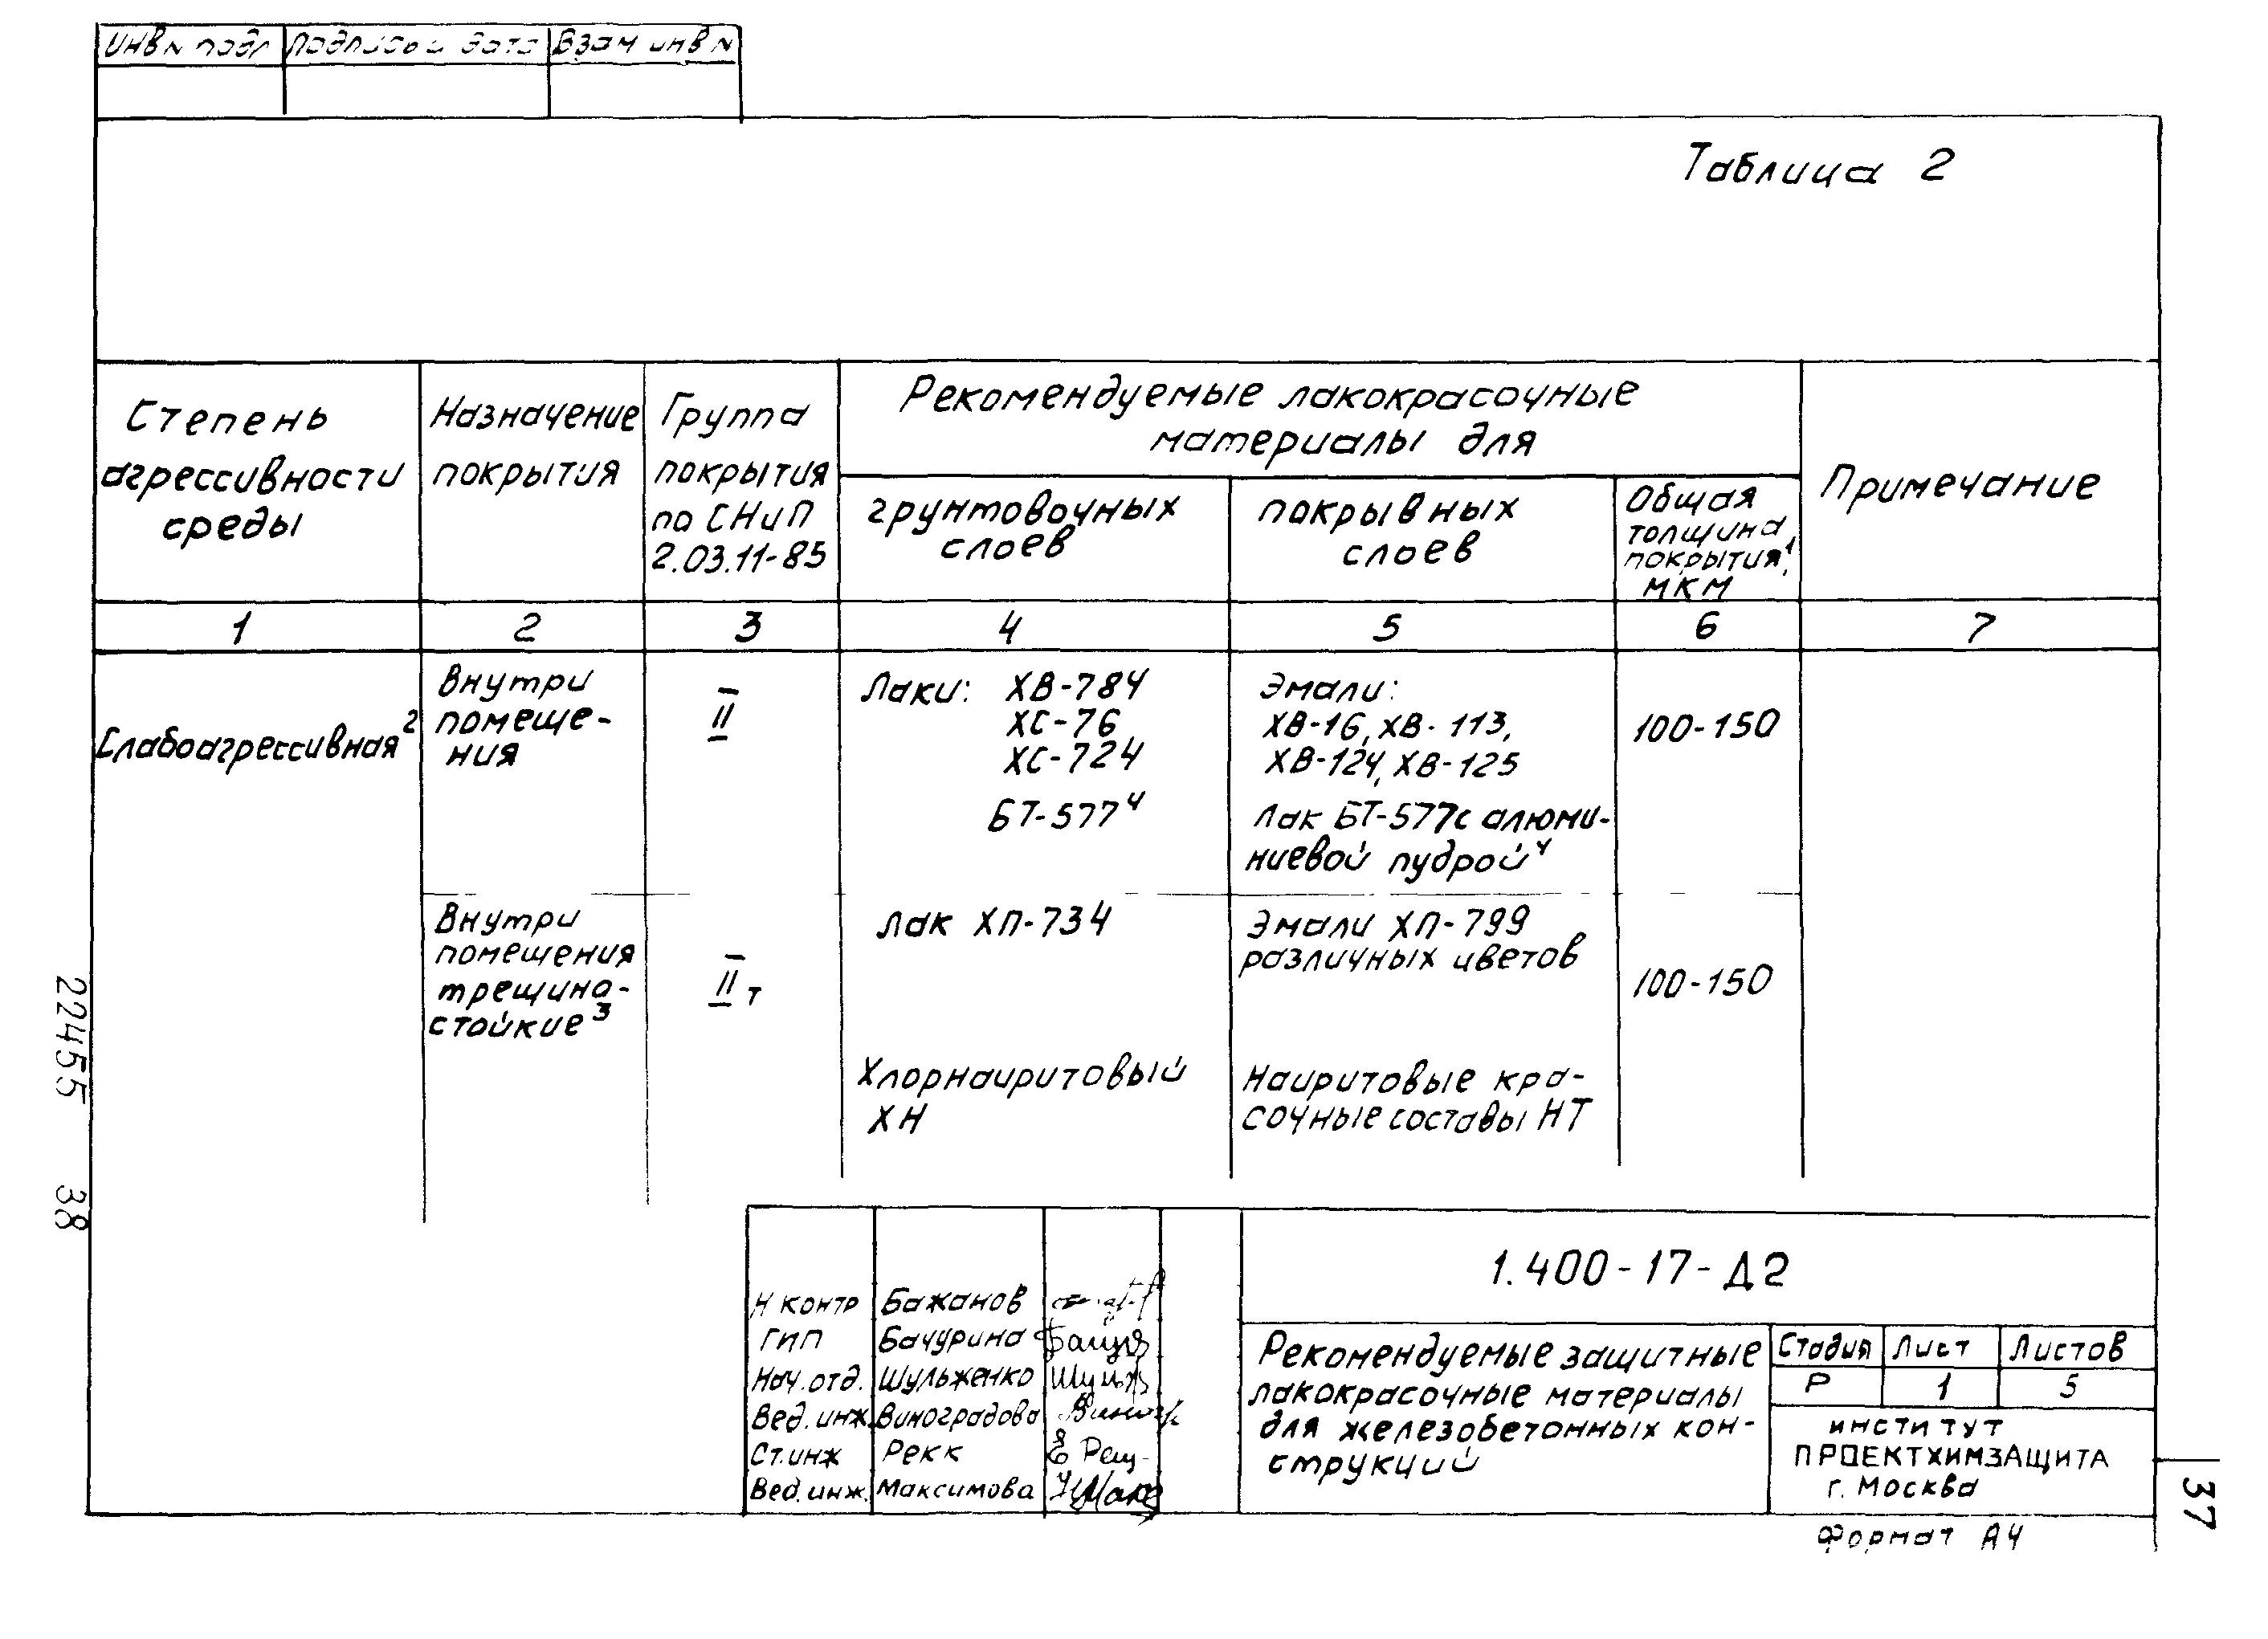 Инв N подл Подпись и дата Взам инв N
Таблица 2
Степень агрессивности среды
Назначение покрытия
Группа покрытия по СНиП 2.03.11-85
Рекомендуемые лакокрасочные
материалы для
грунтовочных
слоев
покрывных
слоев
Общая
толщина
покрытия¹,
мкм
Примечание
1 2 3 4 5 6 7
Слабоагрессивная²
Внутри
помеще-
ния
II
Лаки: ХВ-784
ХС-76
ХС-724
БТ-577⁴
Эмали:
ХВ-16, ХВ-113,
ХВ-124, ХВ-125
Лак БТ-577с алюми-
ниевой пудрой⁴
100-150
Внутри
помещения
трещино-
стойкие³
IIт
Лак ХП-734
Эмали ХП-799
различных цветов
100-150
Хлорнаиритовый
ХН
Наиритовые кра-
сочные составы НТ
22455 38
1.400-17-Д2
Н контр Бажанов
ГИП Бачурина
Нач.отд. Шульженко
Вед.инж. Виноградова
Ст.инж Рекк
Вед.инж. Максимова
Рекомендуемые защитные
лакокрасочные материалы
для железобетонных кон-
струкций
Стадия Лист Листов
Р 1 5
ИНСТИТУТ
ПРОЕКТХИМЗАЩИТА
г. Москва
Формат А4
37